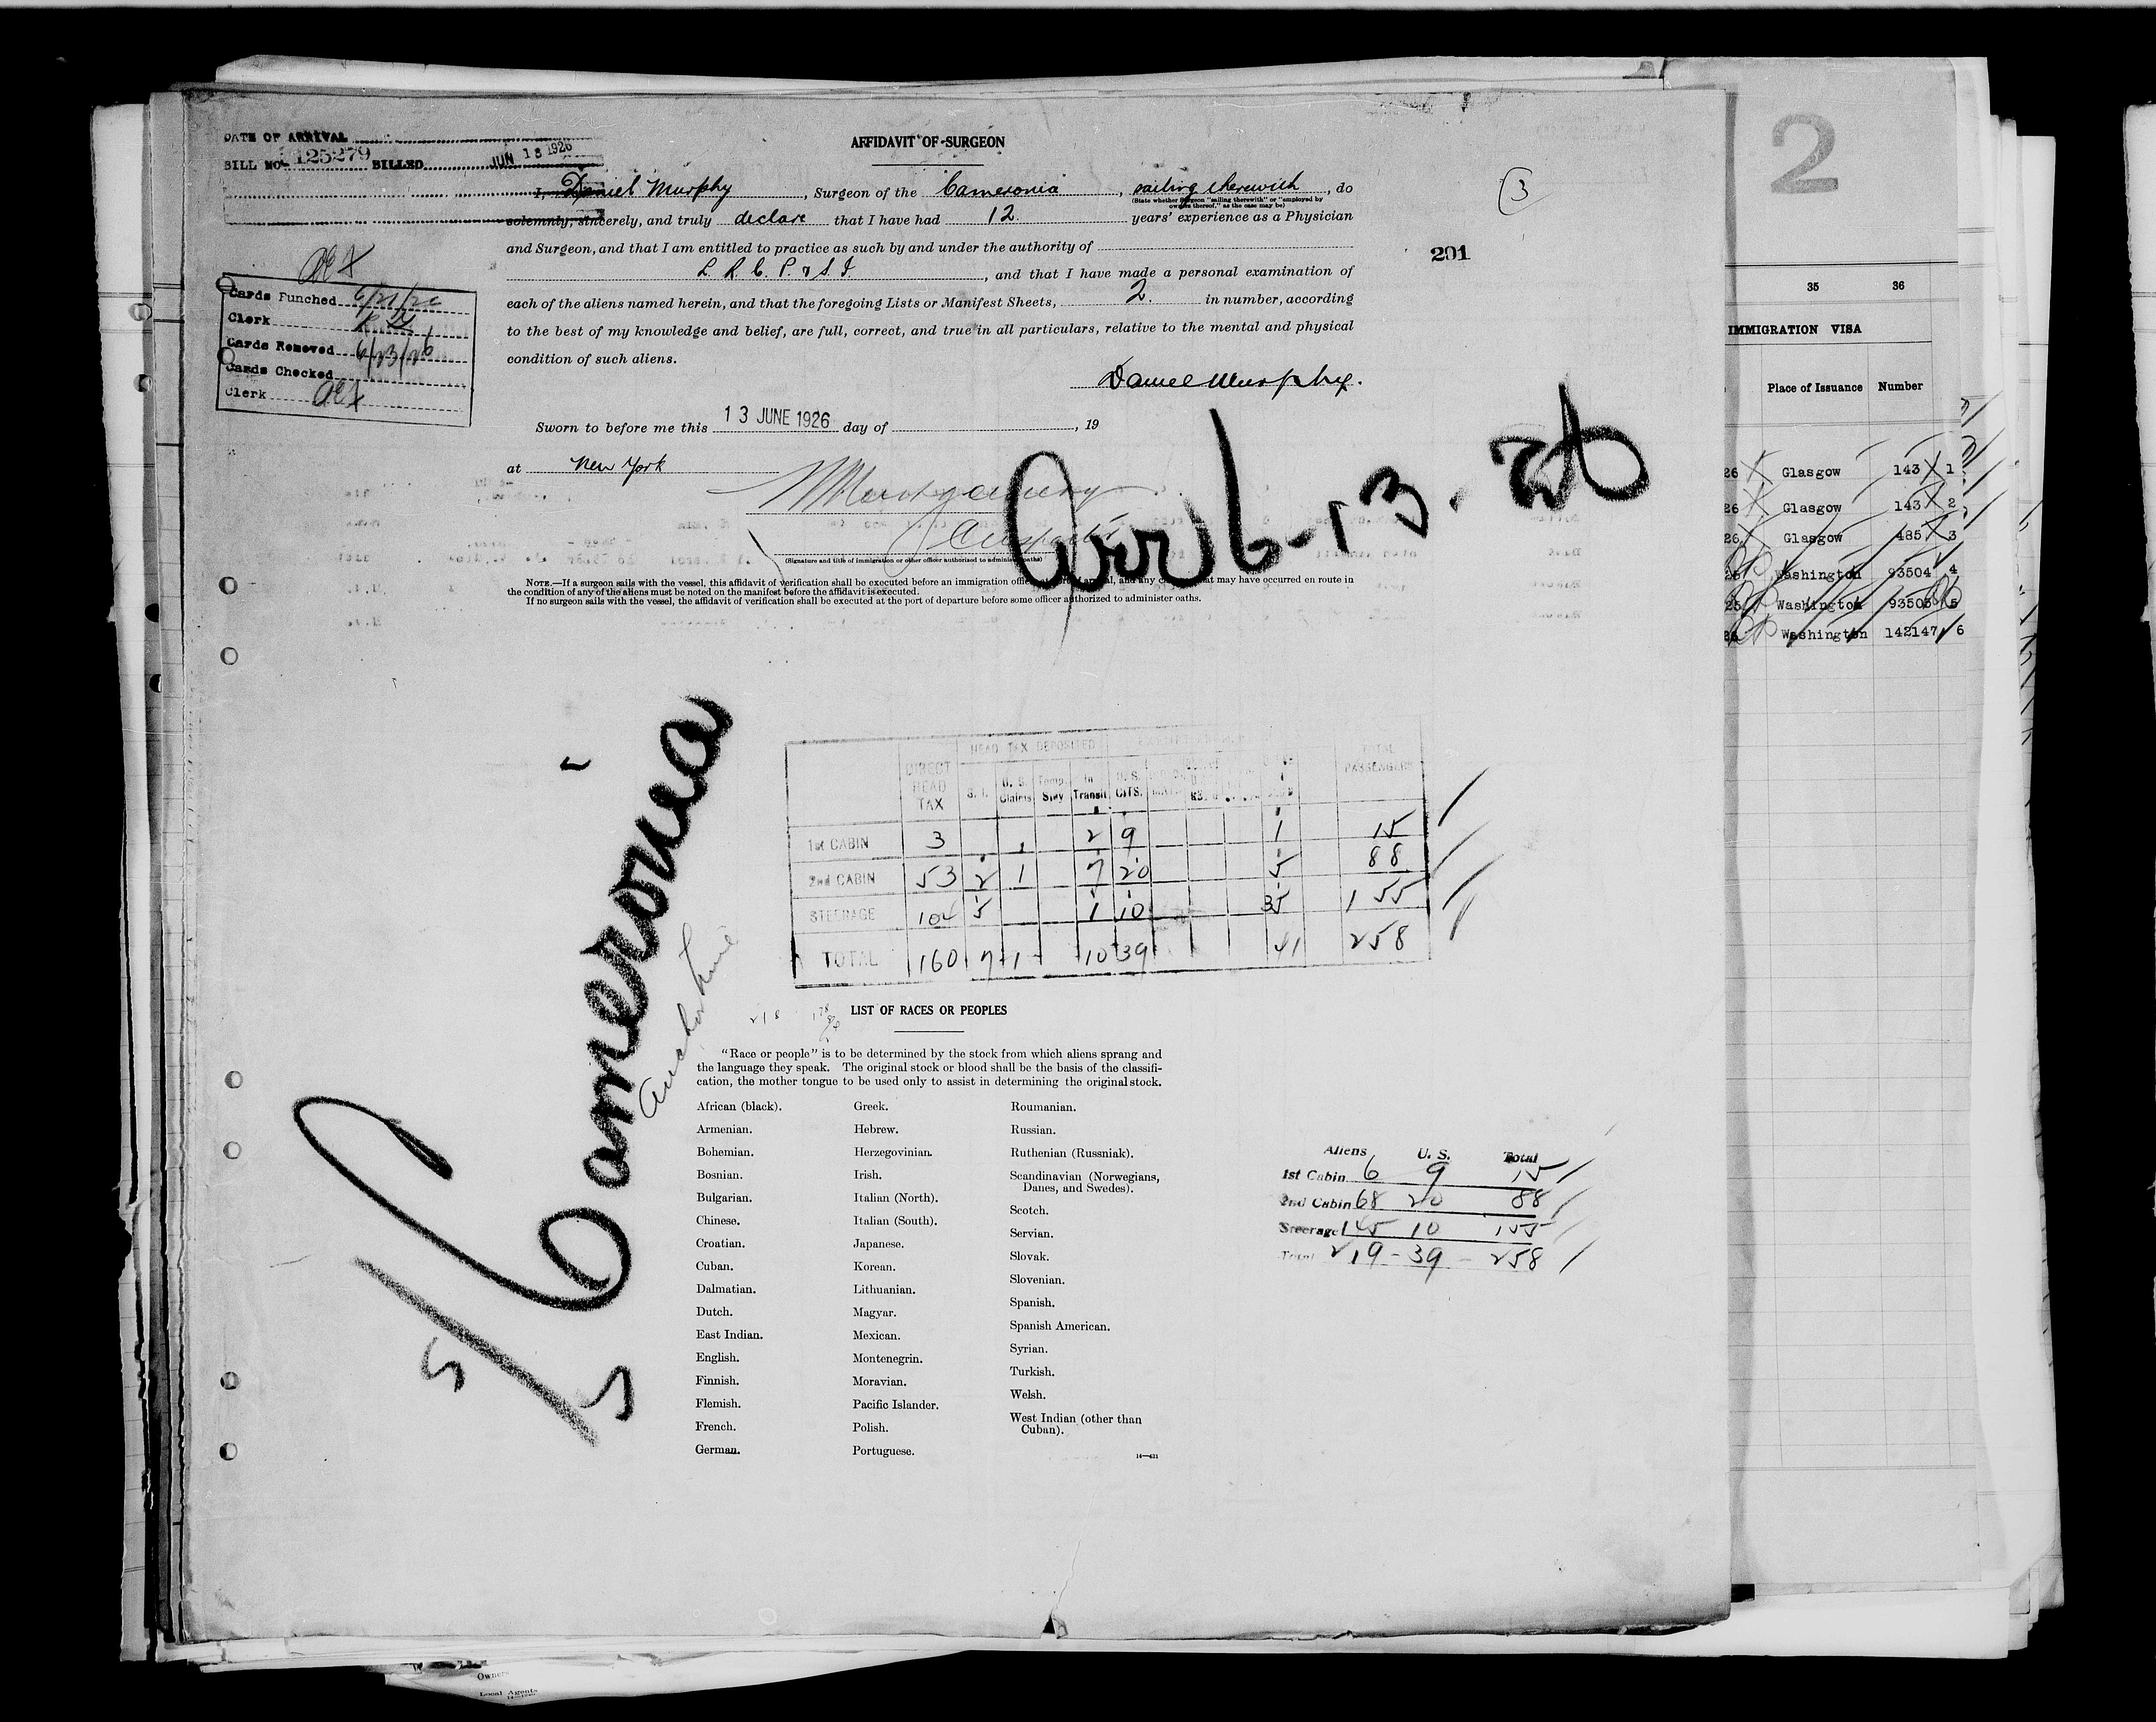 DATE OF ARRIVAL
BILL NO. 125279 BILLED JUN 13 1926
AFFIDAVIT OF SURGEON
3
2
I, Daniel Murphy, Surgeon of the Cameronia, sailing therewith, do
(State whether Surgeon "sailing therewith" or "employed by
owners thereof," as the case may be)
solemnly, sincerely, and truly declare that I have had 12 years' experience as a Physician
and Surgeon, and that I am entitled to practice as such by and under the authority of
L. R. C. P. & S. I., and that I have made a personal examination of
201
each of the aliens named herein, and that the foregoing Lists or Manifest Sheets, 2. in number, according
to the best of my knowledge and belief, are full, correct, and true in all particulars, relative to the mental and physical
condition of such aliens.
Daniel Murphy.
Cards Punched 6/21/26
Clerk
Cards Removed 6/23/26
Cards Checked
Clerk
Sworn to before me this 13 JUNE 1926 day of , 19
at New York
Arr 6-13-26
(Signature and title of immigration or other officer authorized to administer oaths)
NOTE.—If a surgeon sails with the vessel, this affidavit of verification shall be executed before an immigration any may have occurred en route in
the condition of any of the aliens must be noted on the manifest before the affidavit is executed.
If no surgeon sails with the vessel, the affidavit of verification shall be executed at the port of departure before some officer authorized to administer oaths.
35 36
IMMIGRATION VISA
Place of Issuance Number
26 Glasgow 143 1
26 Glasgow 143 2
26 Glasgow 485 3
26 Washington 93504 4
25 Washington 93505 5
Washington 142147 6
S/S Cameronia
Anchor Line
HEAD TAX DEPOSITED
DIRECT HEAD TAX S. I. U. S. Claims Temp. Stay In Transit U. S. CITS. TOTAL PASSENGERS
1st CABIN 3 2 9 1 15
2nd CABIN 53 2 1 7 20 5 88
STEERAGE 104 5 1 10 35 155
TOTAL 160 7 1 10 39 41 258
218
LIST OF RACES OR PEOPLES
"Race or people" is to be determined by the stock from which aliens sprang and
the language they speak. The original stock or blood shall be the basis of the classifi-
cation, the mother tongue to be used only to assist in determining the original stock.
African (black).
Armenian.
Bohemian.
Bosnian.
Bulgarian.
Chinese.
Croatian.
Cuban.
Dalmatian.
Dutch.
East Indian.
English.
Finnish.
Flemish.
French.
German.
Greek.
Hebrew.
Herzegovinian.
Irish.
Italian (North).
Italian (South).
Japanese.
Korean.
Lithuanian.
Magyar.
Mexican.
Montenegrin.
Moravian.
Pacific Islander.
Polish.
Portuguese.
Roumanian.
Russian.
Ruthenian (Russniak).
Scandinavian (Norwegians,
Danes, and Swedes).
Scotch.
Servian.
Slovak.
Slovenian.
Spanish.
Spanish American.
Syrian.
Turkish.
Welsh.
West Indian (other than
Cuban).
Aliens U. S. Total
1st Cabin 6 9 15
2nd Cabin 68 20 88
Steerage 145 10 155
Total 219 - 39 - 258
Owners
Local Agents